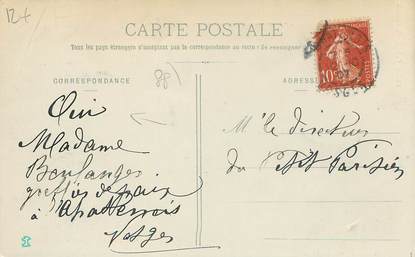 12+
CARTE POSTALE
Tous les pays étrangers n'acceptent pas la correspondance au recto. (Se renseigner
CORRESPONDANCE
ADRESSE
10
POSTES
Oui
Madame
Boulanger
greffier de paix
à Chatenois
Vosges
Mr le directeur
du Petit Parisien